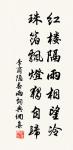 红楼隔雨相望冷
珠箔飘灯独自归
李商隐春雨词典佩嘉